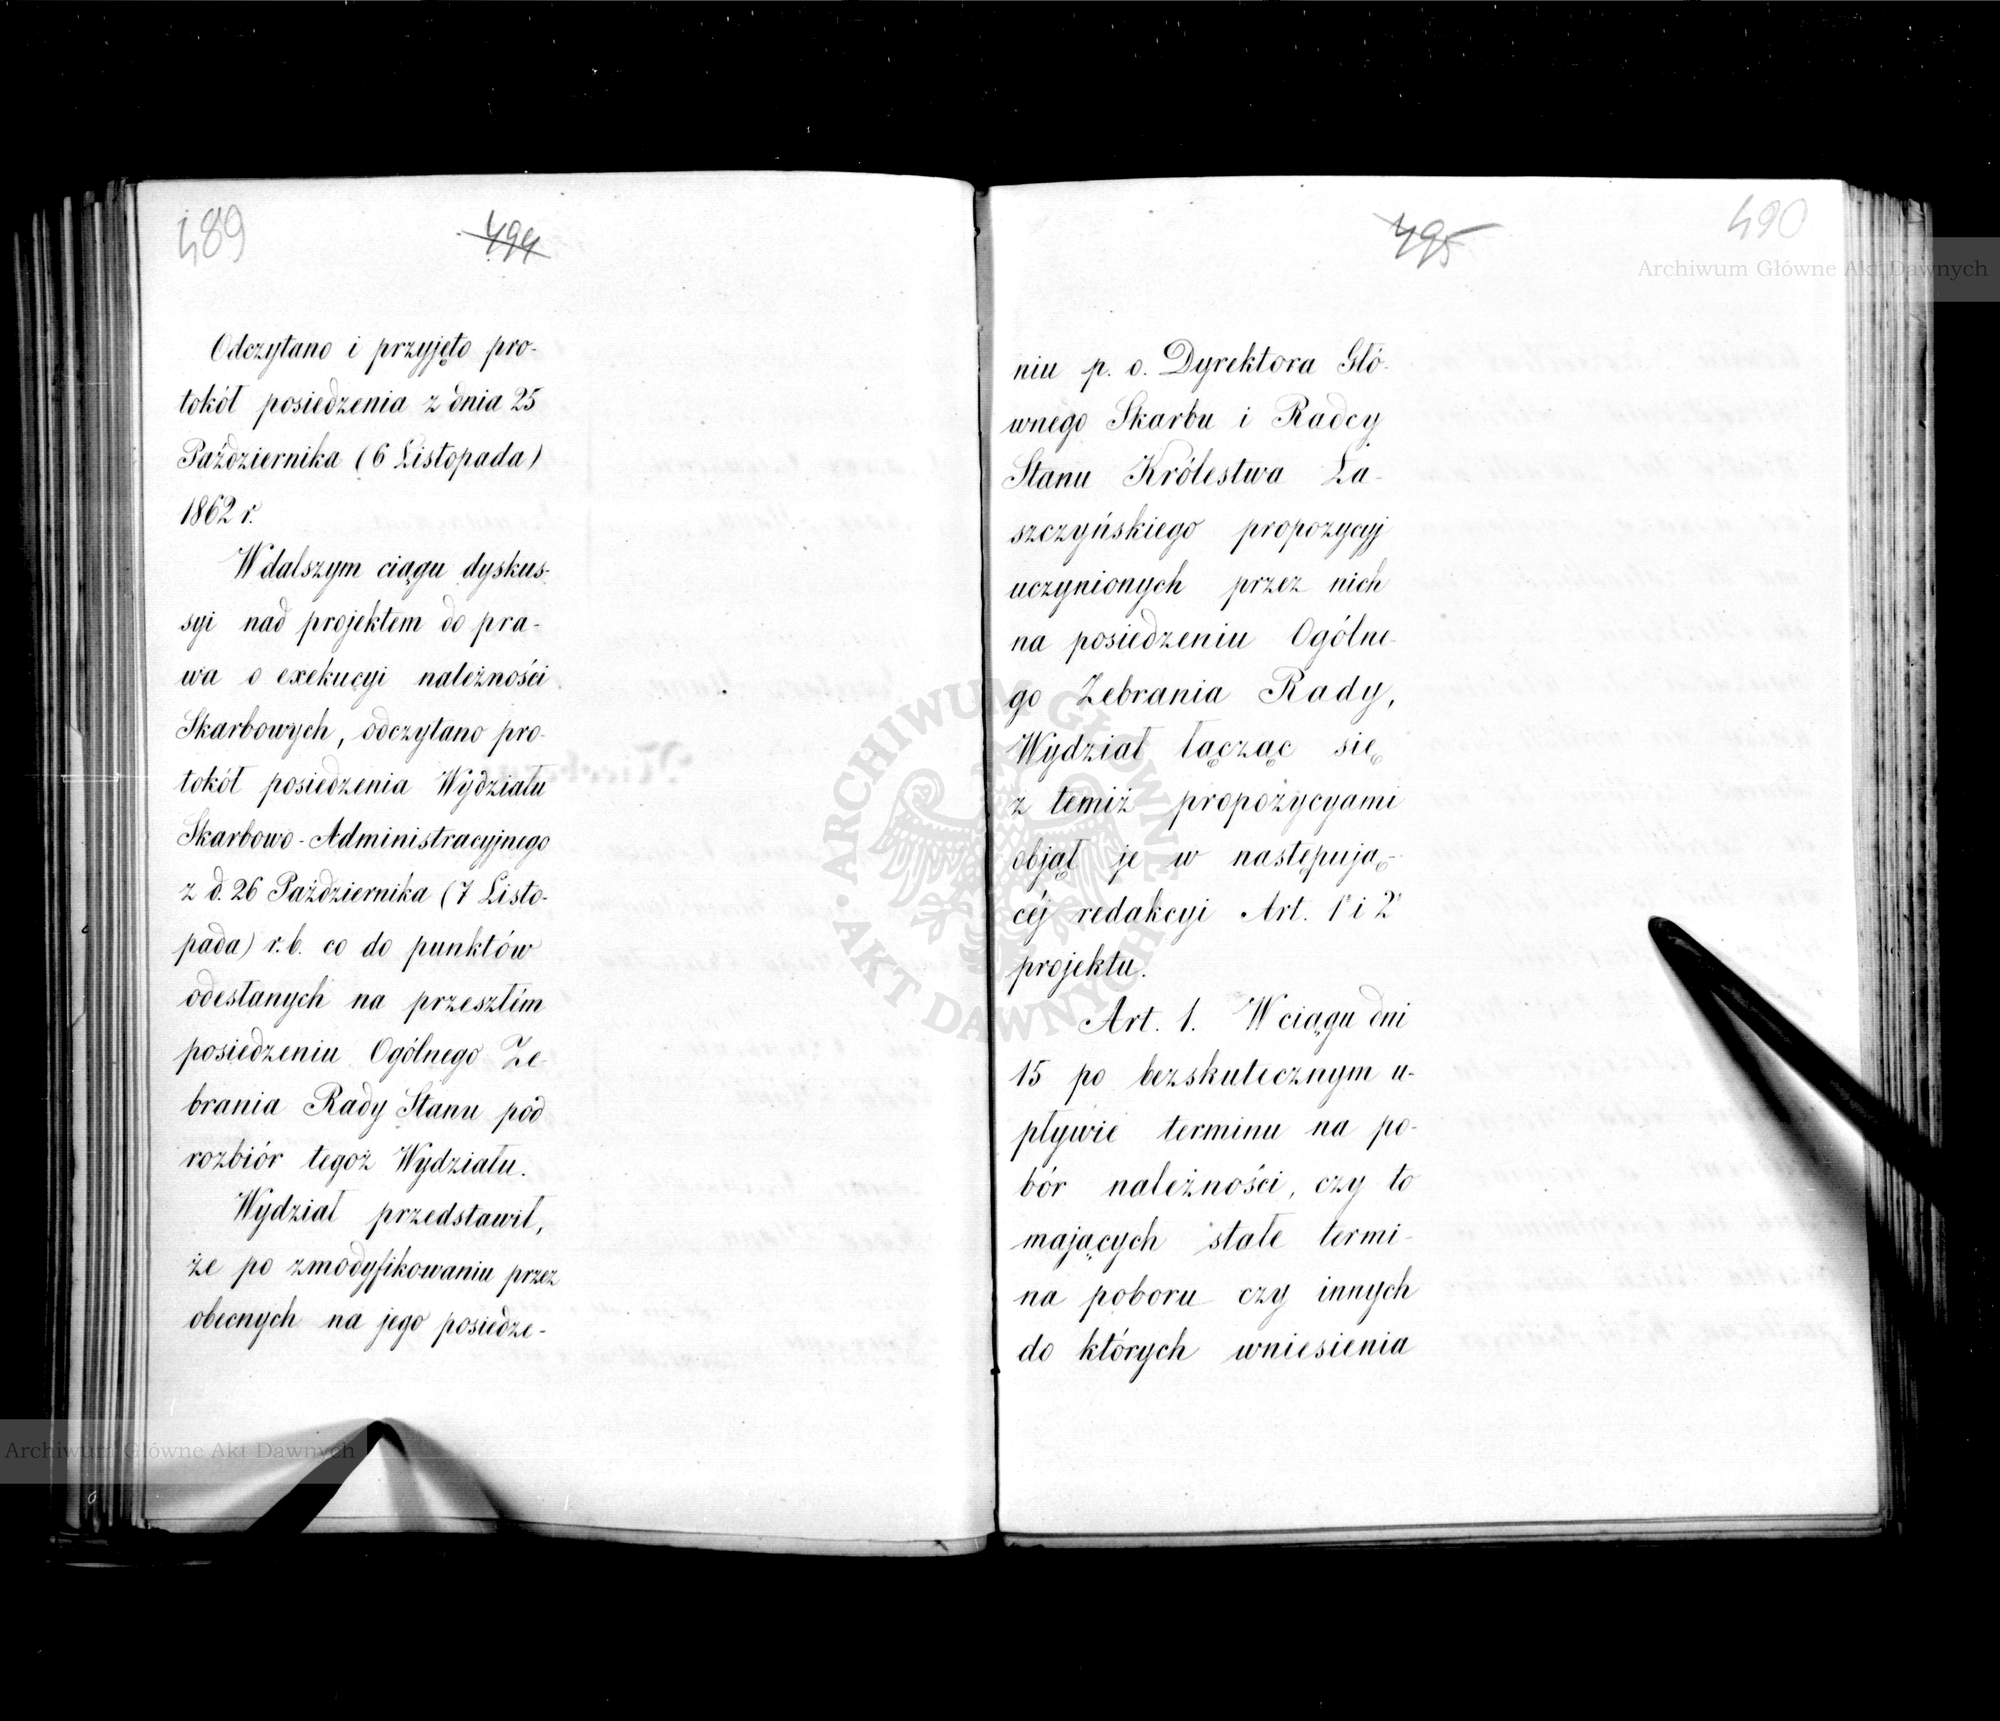 489
494
Odczytano i przyjęto pro-
tokół posiedzenia z dnia 25
Października (6 Listopada)
1862 r.
W dalszym ciągu dyskus-
syi nad projektem do pra-
wa o exekucyi należności
Skarbowych, odczytano pro-
tokół posiedzenia Wydziału
Skarbowo-Administracyjnego
z d. 26 Października (7 Listo-
pada) r. b. co do punktów
odesłanych na przeszłém
posiedzeniu Ogólnego Ze-
brania Rady Stanu pod
rozbiór tegoż Wydziału.
Wydział przedstawił,
że po zmodyfikowaniu przez
obecnych na jego posiedze-
495
490
niu p. o. Dyrektora Głó-
wnego Skarbu i Radcy
Stanu Królestwa Ła-
szczyńskiego propozycyj
uczynionych przez nich
na posiedzeniu Ogólne-
go Zebrania Rady,
Wydział łącząc się
z temiż propozycyami
objął je w następują-
céj redakcyi Art. 1 i 2
projektu.
Art. 1. W ciągu dni
15 po bezskutecznym u-
pływie terminu na po-
bór należności, czy to
mających stałe termi-
na poboru czy innych
do których wniesienia
Archiwum Główne Akt Dawnych
Archiwum Główne Akt Dawnych
ARCHIWUM GŁÓWNE
AKT DAWNYCH